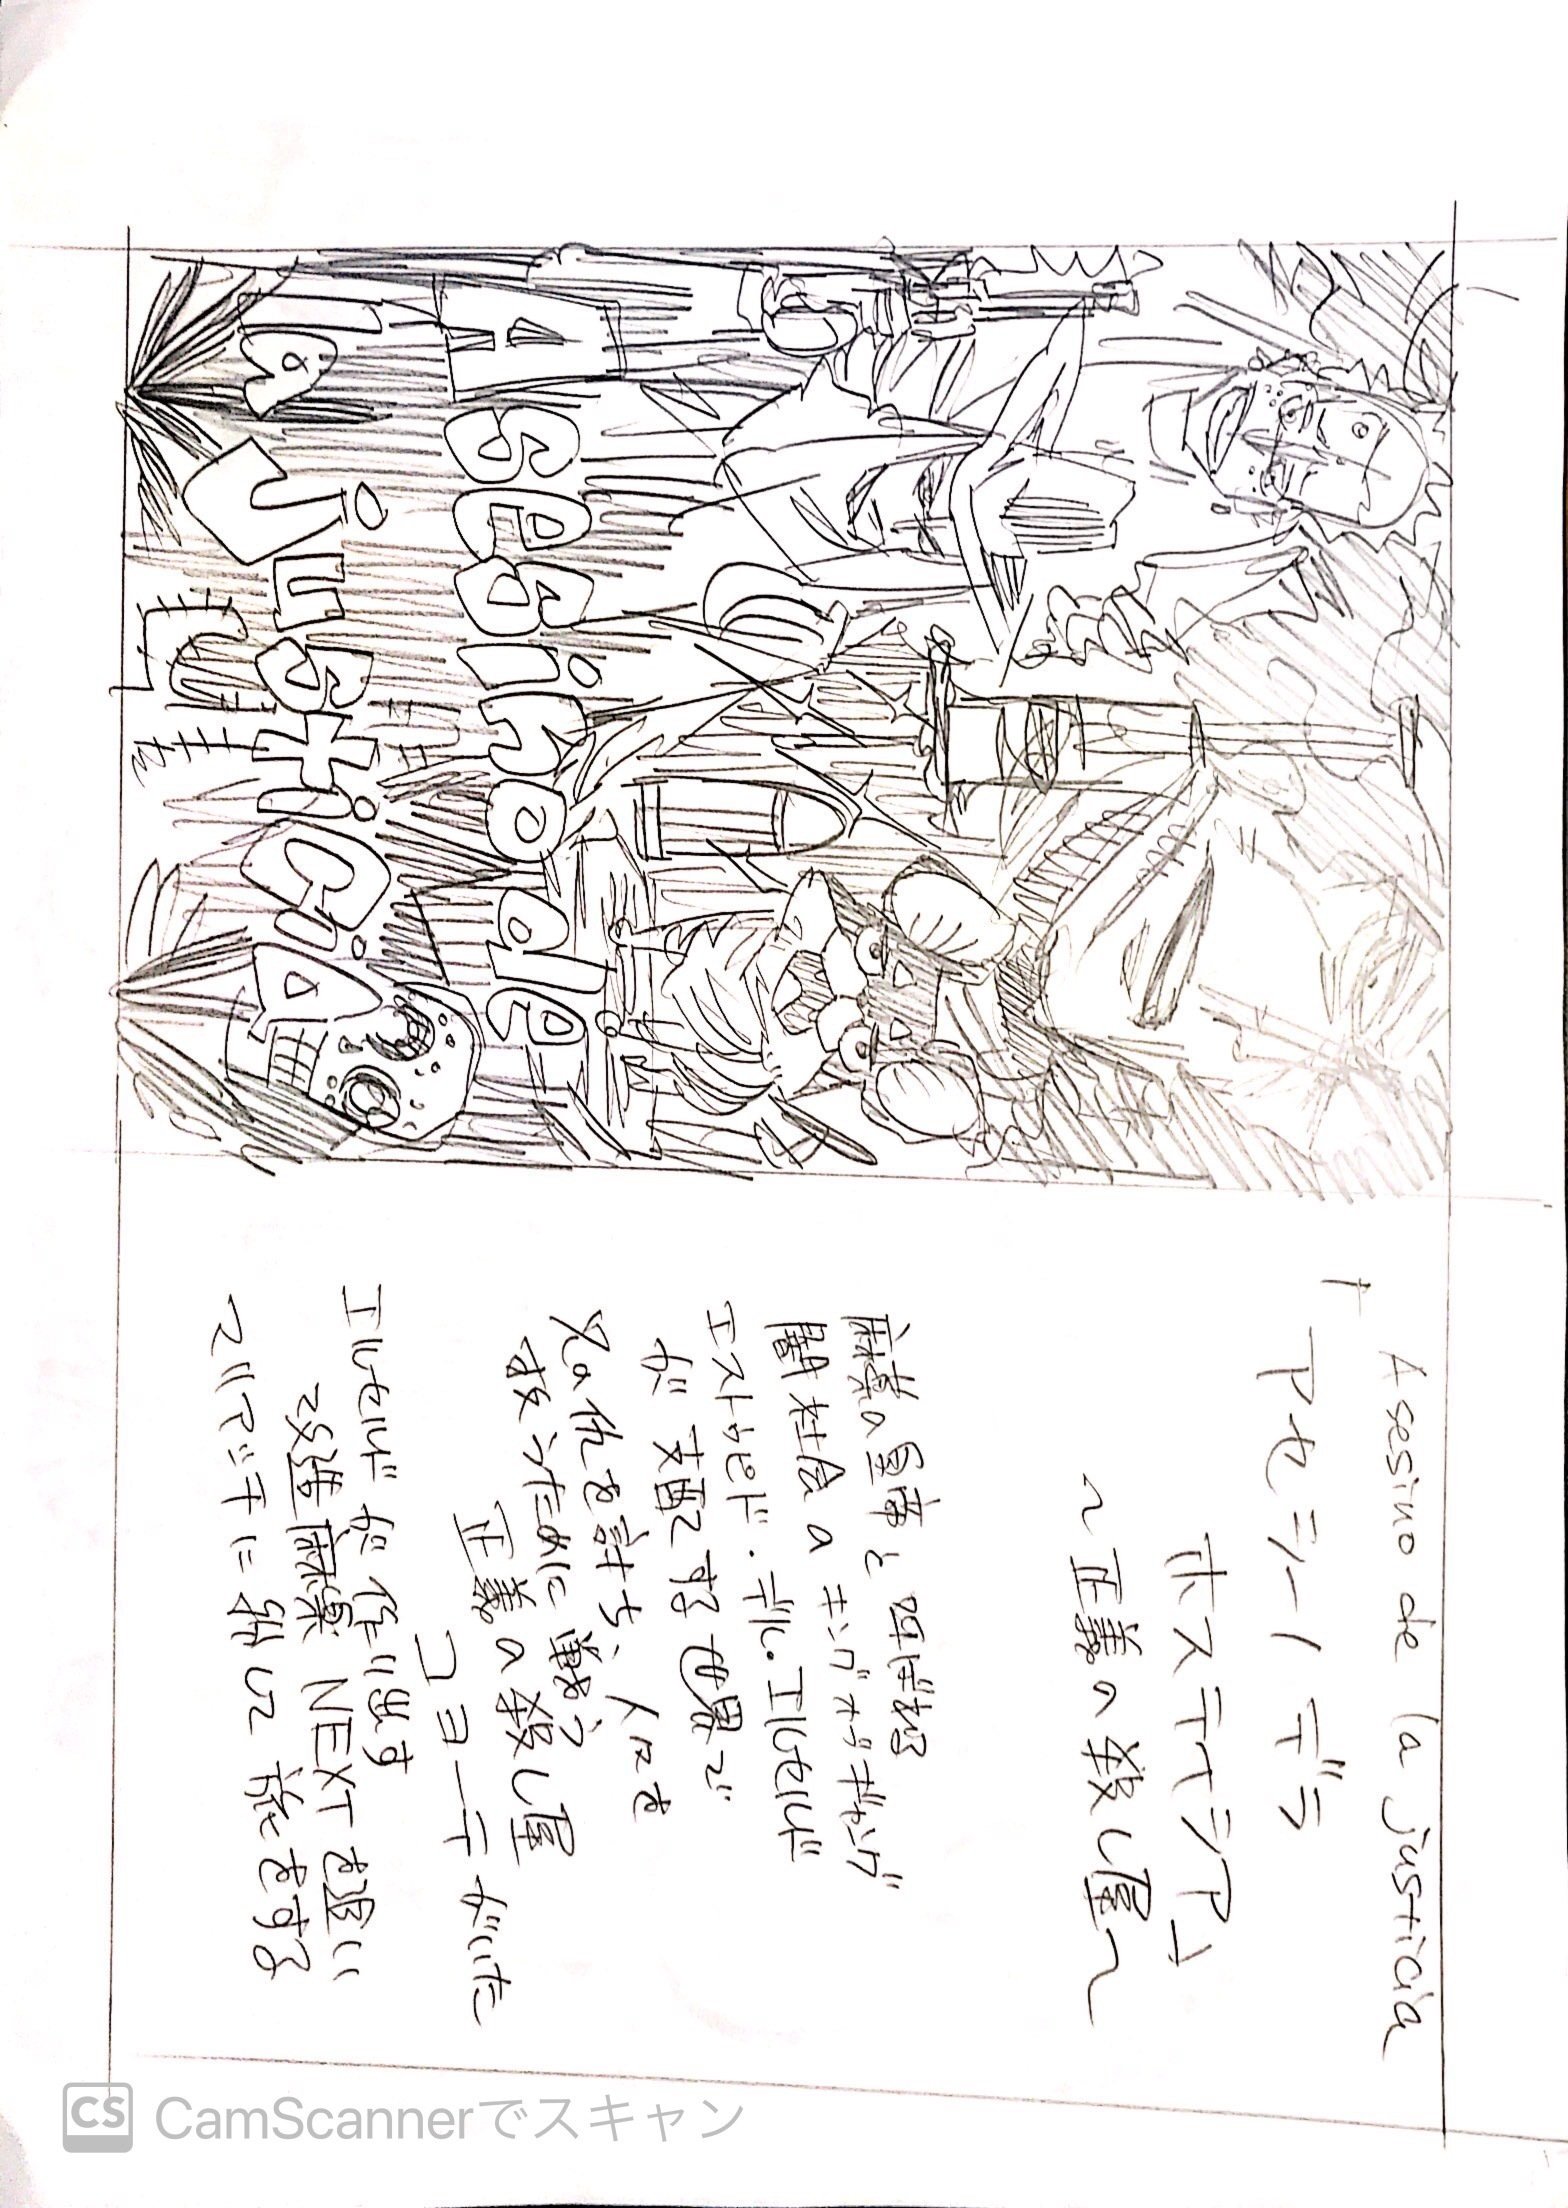 Asesino de
la justicia
Asesino de la justicia
アセシーノ デ ラ
ホスティシア
〜正義の殺し屋〜
麻薬の皇帝と呼ばれる
闇社会のキングオブギャング
エストゥピド・デル。エルセルド
が支配する世界で
父の仇を討ち、人々を
救うために戦う
正義の殺し屋
コヨーテがいた
エルセルドが作り出す
改造麻薬 NEXTを追い
マリアッチに扮して旅をする
CS CamScannerでスキャン